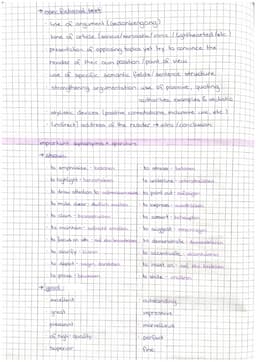 → non-fictional text:
line of argument (Gedankengang)
tone of article (serious/sarcastic/ironic / lighthearted/etc.)
presentation of opposing topics yet try to convince the
reader of their own position / point of view
use of specific semantic fields / sentence structure
strengthening argumentation: use of passive, quoting
authorities, examples & statistic
stylistic devices (positive connotations, inclusive we, etc.)
(indirect) address of the reader → intro / conclusion
important synonyms + grandure
→ show:
to emphasize - betonen
to stress - betonen
to highlight - hervorheben
to underline - unterstreichen
to draw attention to -
to point out - aufzeigen
to make clear - deutlich machen
to express - ausdrücken
to claim - beanspruchen
to assert - behaupten
to maintain -
to suggest -
to focus on sth -
to demonstrate - demonstrieren
to clarify - klären
to accentuate - akzentuieren
to depict - zeigen, darstellen
to insist on -
to prove - beweisen
to state - erklären
→ good:
excellent
outstanding
great
impressive
pleasant
marvellous
of high quality
perfect
superior
fine